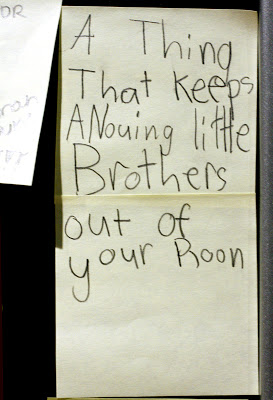 OR
A Thing
That Keeps
ANouing little
Brothers
out of
your Roon